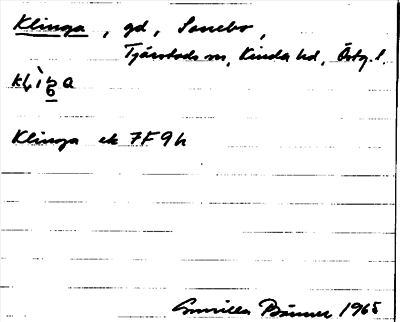 Klinga, gd, Sanebo,
Tjärstads sn, Kinda hd, Östg. l.
Klinga ek 7F9h
Gunilla 1965